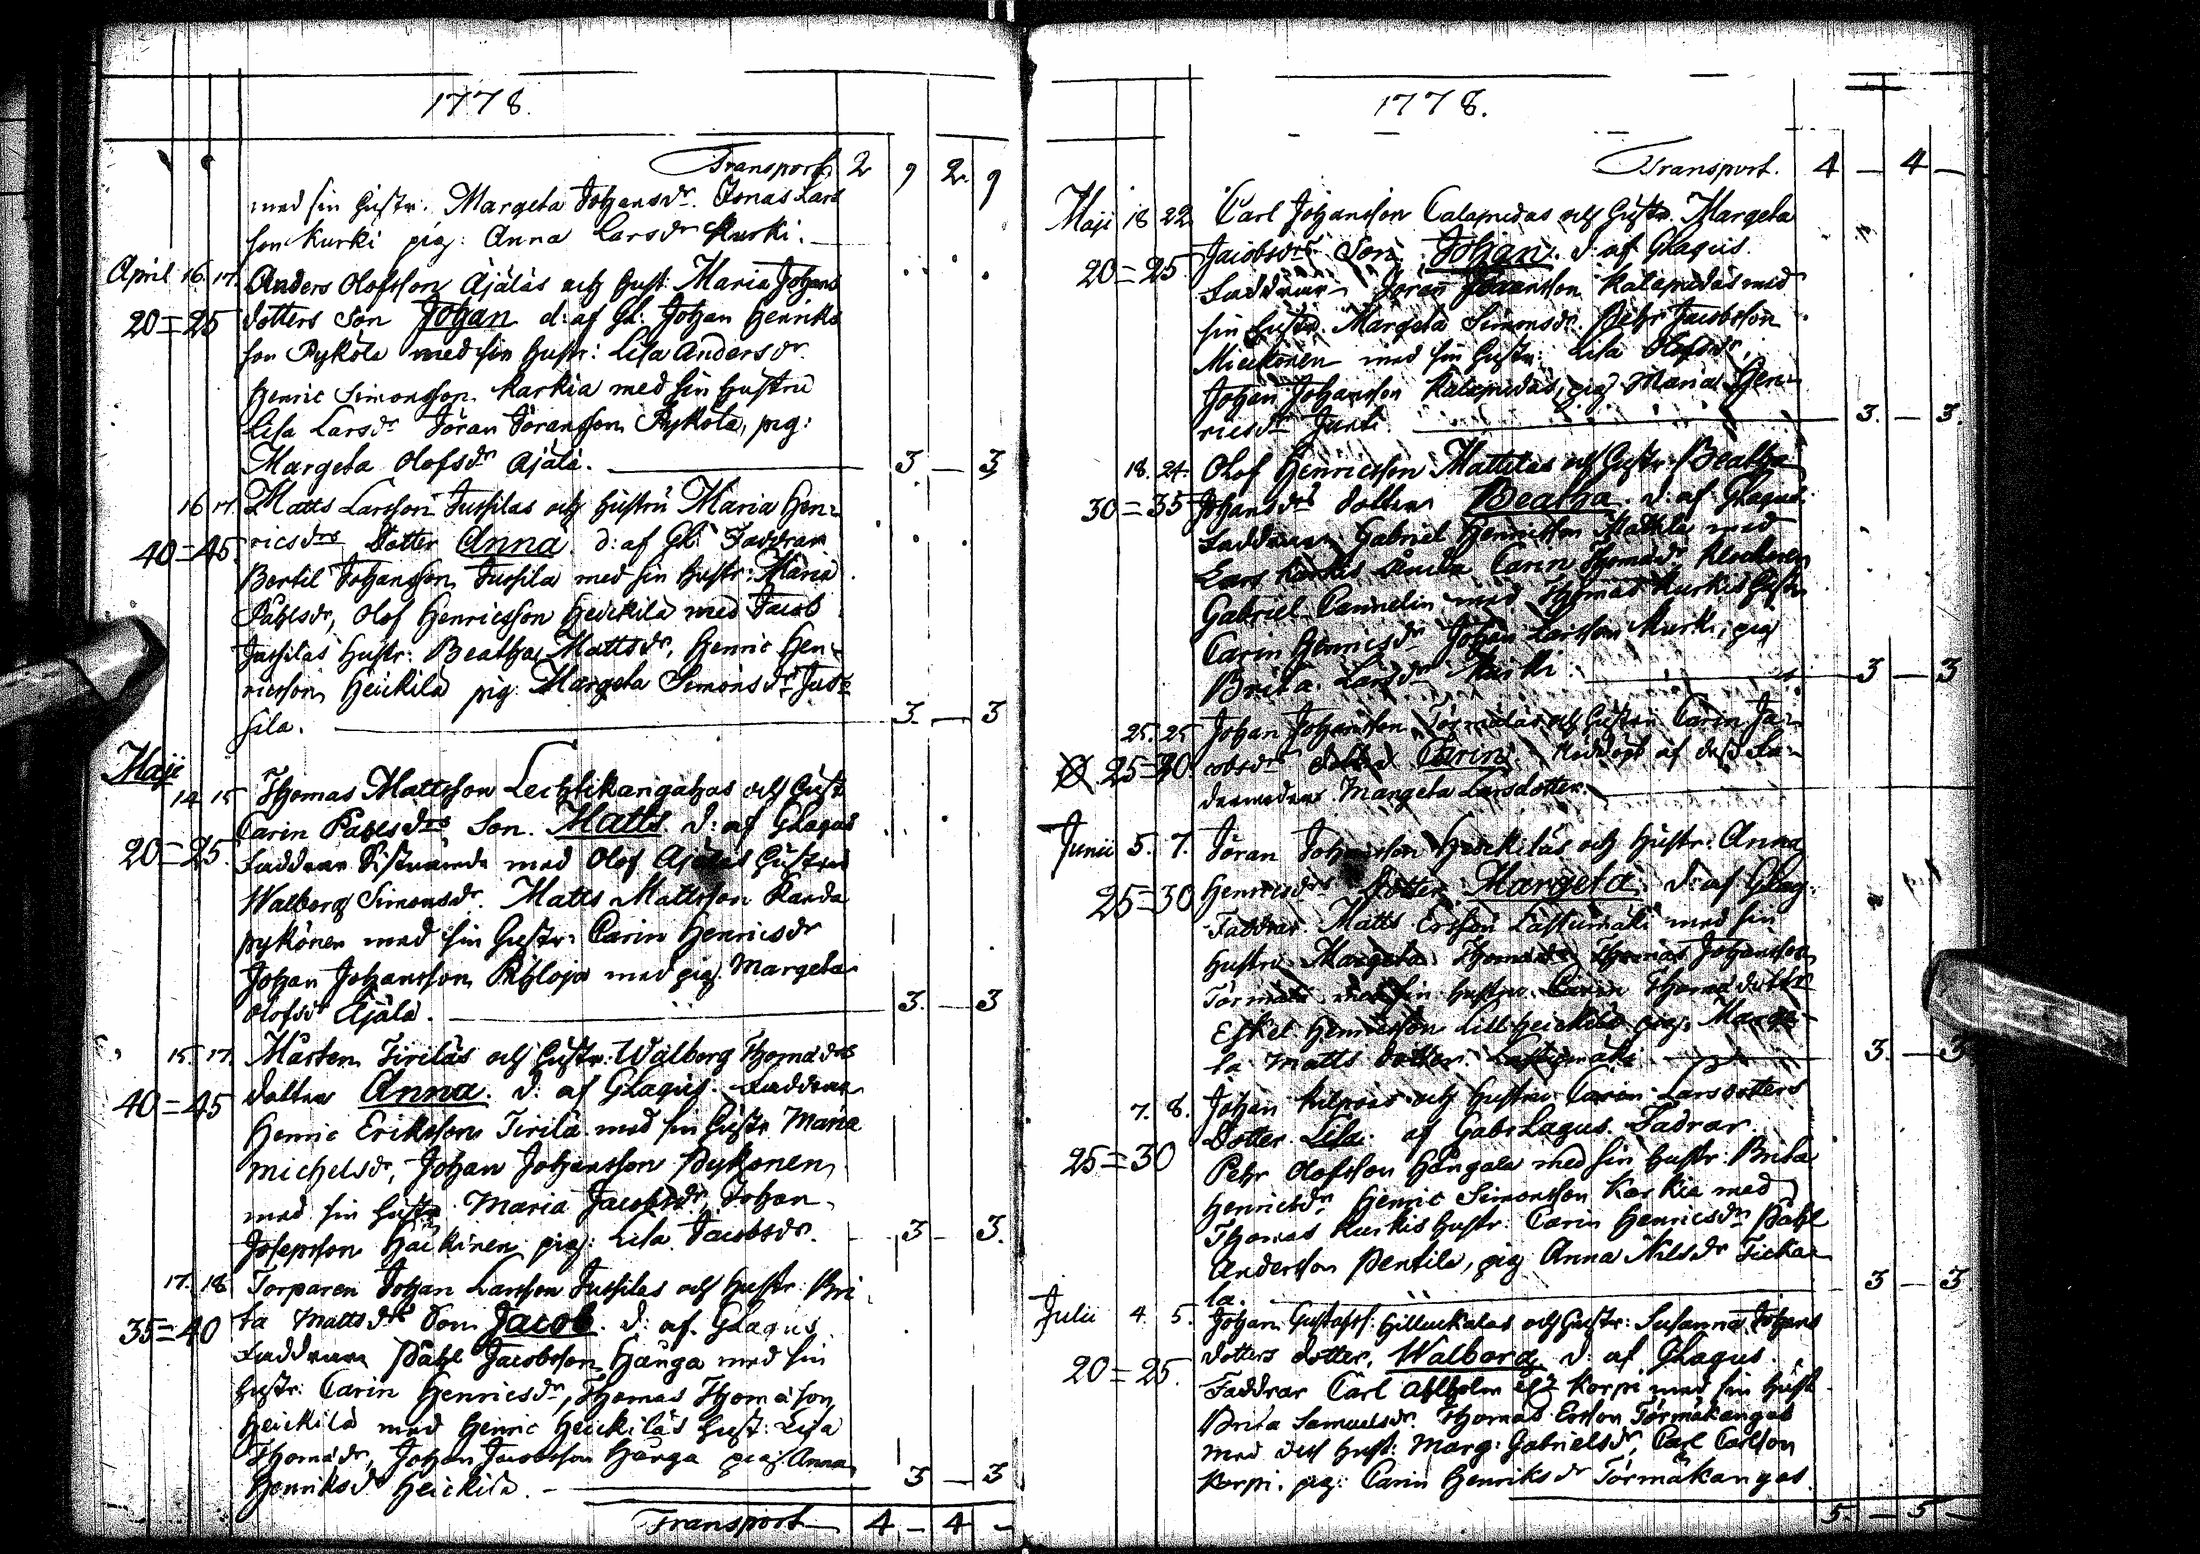 1778.
Transport 2 9 2 9
med sin hustr. Margeta Johansdr. Jonas Lars
son Kurki pig: Anna Larsdr Kurki.
April 16. 17. Anders Olofsson Ajälas och hust: Maria Johans
20=25 dotters Son Johan d: af Gl. Johan Henriks
son Pyköla med sin hustr: Lisa Andersdr.
Henric Simonsson Karkia med sin hustru
Lisa Larsdr Jöran Göransson Pykola, pig:
Margeta Olofsdr Ajälä. 3 — 3
16 17. Matts Larsson Jussilas och hustru Maria Hen=
40=45. ricsdrs Dotter Anna. d: af Gl: Faddrar
Bertil Johansson Jussila med sin hustr: Maria
Påhlsdr, Olof Henricsson Heickilä med Jacob
Jussilas hustr: Beatha Mattsdr, Henric Hen=
ricsson Heickilä pig: Margeta Simonsdr Jus=
sila. 3. — 3
Maji
14 15 Thomas Mattsson Lechtikangahas och hust
Carin Påhlsdrs Son. Matts. d: af GLagus
20=25. Faddrar med Olof Ajälas hustru
Walborg Simonsdr. Matts Mattsson Randa
pykönen med sin hustr: Carin Henricsdr
Johan Johansson Pihloja med pig. Margeta
Olofsdr Ajälä. 3. — 3
15. 17. Mårten Tiriläs och hustr: Walborg Thomædrs
40=45 dotter Anna. d: af GLagus. Faddrar
Henric Eriksson Tirilä med sin hustr Maria
Michelsdr, Johan Johansson Pykonen
med sin hustr Maria Jacobsdr, Johan
Josepsson Häikinen pig: Lisa Jacobsdr. 3 — 3.
17. 18 Torparen Johan Larsson Jussilas och hustr: Bri
35=40 ta Mattsdrs Son Jacob. d: af GLagus
Faddrar Påhl Jacobsson Hånga med sin
hustr: Carin Henricsdr, Thomas Thomæson
Heickilä med Henric Heickiläs hust: Lisa
Thomædr, Johan Jacobsson Hånga pig: Anna
Henriksdr Heickilä. 3 — 3
Transport 4 — 4 —
1778.
Transport. 4 — 4 —
Maji 18 22 Carl Johansson Calapudas och hustr. Margeta
Jacobsdrs Son Johan. d: af GLagus.
20=25. Faddrar Jöran Göransson Kalapudas med
sin hustr. Margeta Simonsdr. Pehr Jacobsson
Mickonen med sin hustr: Lisa Olofsdr,
Johan Johansson Kalapudas, pig Maria Hen=
ricsdr Junti. 3. — 3.
18. 24. Olof Henricsson Mattilas och hustr. Beatha
30=35 Johansdrs dotter Beatha. d: af GLagus.
Faddrar Gabriel Henricsson Mattila med
Lars Kurkis Carin Thomædr, Klockaren
Gabriel Cannelin med Thomas Kurkis hustr
Carin Henricsdr Johan Larsson Kurki, pig
Brita Larsdr Kurki 3 — 3
25. 25 Johan Johansson Törmäläs och hustru Carin Ja=
25=30. cobsdrs dotter Carin. Nöddöpt af dess Fa=
dermoder Margeta Larsdotter.
Junii 5. 7. Jöran Johansson Heickiläs och hustr: Anna
25=30 Henricsdrs Dotter Margeta. d: af GLag.
Faddrar. Matts Ersson Lastumäki med sin
hustru Margeta Thomædr, Thomas Johansson
Törmälä med sin hustru Carin Thomædotter
Eskel Henricsson Lillheickilä pig: Marge=
ta Matts dotter Lastumäki 3. — 3
7. 8. Johan Kilpias och hustru Carin Larsdotters
Dotter Lisa. af Gabr Lagus. Fadrar.
25=30 Pehr Olofsson Hångala med sin hustr: Brita
Henricsdr, Henric Simonsson Karkia med
Thomas Kurkis hustr: Carin Henricsdr Påhl
Andersson Pentila, pig Anna Nilsdr Ticka=
la. 3 — 3
Julii 4. 5. Johan Gustafss: Hilluckalas och hustr: Susanna Johans
20=25. dotters dotter, Walborg d: af GLagus.
Faddrar Carl Ahlholm Korpi med sin hust
Brita Samuelsdr. Thomas Ersson Törmäkangas
med dess hust: Marg: Gabrielsdr, Carl Carlson
Korpi. pig: Carin Henriksdr Törmäkangas.
5. — 5 —